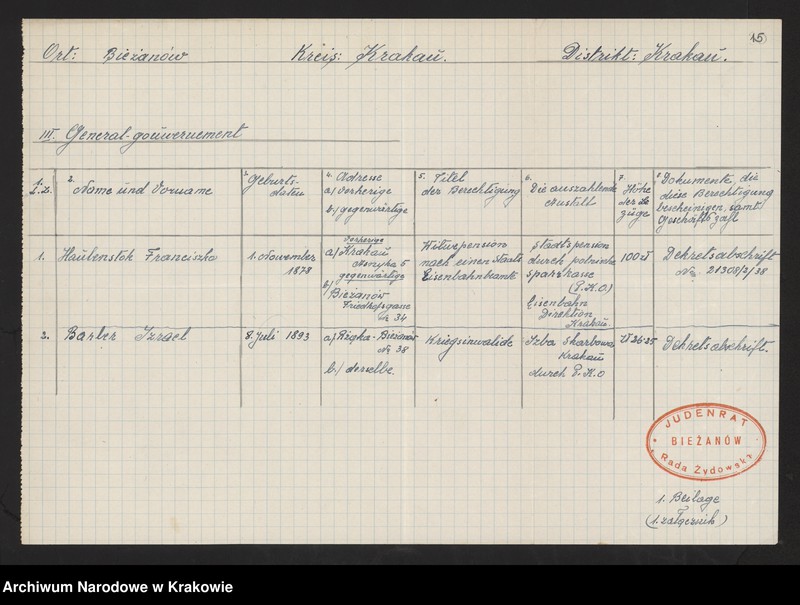 15
Ort: Bieżanów Kreis: Krakau. Distrikt: Krakau.
III. General-gouvernement
1. L.Z.
2. Name und Vorname
3. Geburts-
daten
4. Adresse
a) vorherige
b) gegenwärtige
5. Titel
der Berechtigung
6. Die auszahlende
Anstalt
7. Höhe
der Be
züge
8. Dokumente, die
diese Berechtigung
bescheinigen, samt
Geschäftszahl
1. Haubenstok Franciszka
1. November
1878
vorherige
a) Krakau
Asnyka 5
gegenwärtige
b) Bieżanów
Friedhofgasse
№ 34
Witwepension
nach einen Staats
Eisenbahnbeamte
Staatspension
durch polnische
Sparkasse
(P.K.O.)
Eisenbahn
Direktion
Krakau.
100 zł
Dekretsabschrift
No. 21308/2/38
2. Barber Izrael
8. Juli 1893
a) Rżąka-Bieżanów
№ 38
b.) derselbe.
Kriegsinwalide
Izba Skarbowa
Krakau
durch P.K.O
zł 26.25
Dekretsabschrift.
JUDENRAT
BIEŻANÓW
Rada Żydowska
1. Beilage
(1. załącznik)
Archiwum Narodowe w Krakowie